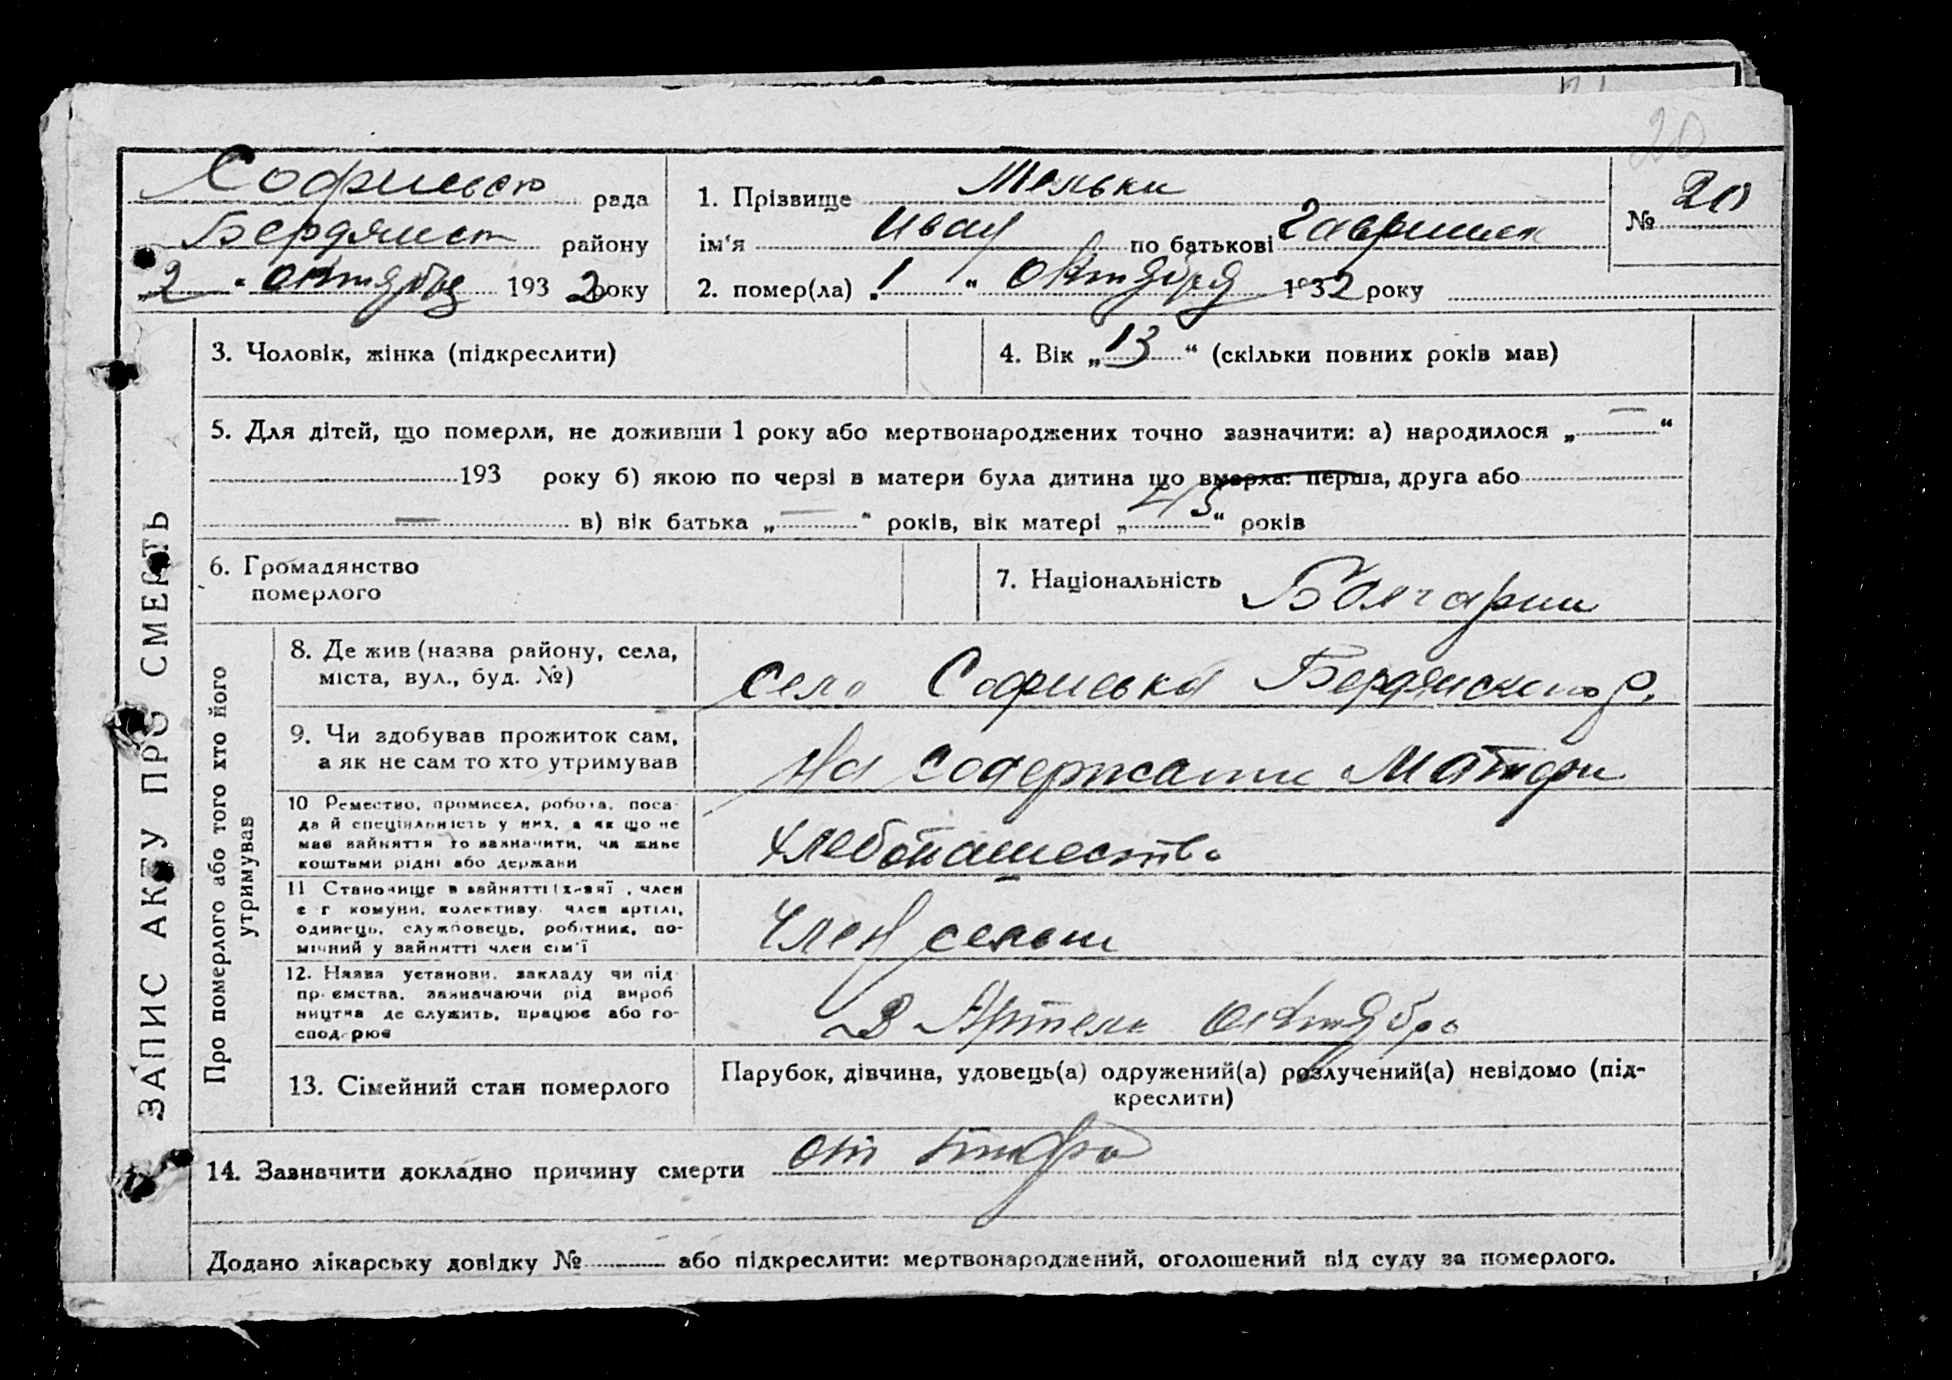 20
Софиевсю рада
Бердянст району
2 " октября 1932 року
1. Прізвище Мельки
ім'я Иван по батькові
2. помер(ла) „1" октября 1932 року
№ 20
3. Чоловік, жінка (підкреслити)
4. Вік „13" (скільки повних років мав)
5. Для дітей, що померли, не доживши 1 року або мертвонароджених точно зазначити: а) народилося „—"
193 року б) якою по черзі в матери була дитина що вмерла: перша, друга або
— в) вік батька „—" років, вік матері „45" років
6. Громадянство
померлого
7. Національність Болгарин
ЗАПИС АКТУ ПРО СМЕРТЬ
Про померлого або того хто його
утримував
8. Де жив (назва району, села,
міста, вул., буд. №)
село Софиевка Бердянского р.
9. Чи здобував прожиток сам,
а як не сам то хто утримував
На содержании Матери
10 Ремество, промисел, робота, поса-
да й спеціяльність у них, а як що не
має зайняття то зазначити, чи живе
коштами рідні або держави
хлебопашество
11 Становище в зайнятті (х-ваї , член
с г комуни, колективу, член артілі,
одинець, службовець, робітник, по-
мічний у зайнятті член сім'ї
член семьи
12. Назва установи, закладу чи під-
приємства, зазначаючи рід вироб
ництва де служить, працює або го-
сподарює
В Артели октябра
13. Сімейний стан померлого
Парубок, дівчина, удовець(а) одружений(а) розлучений(а) невідомо (під-
креслити)
14. Зазначити докладно причину смерти от тифа
Додано лікарську довідку № або підкреслити: мертвонароджений, оголошений від суду за померлого.